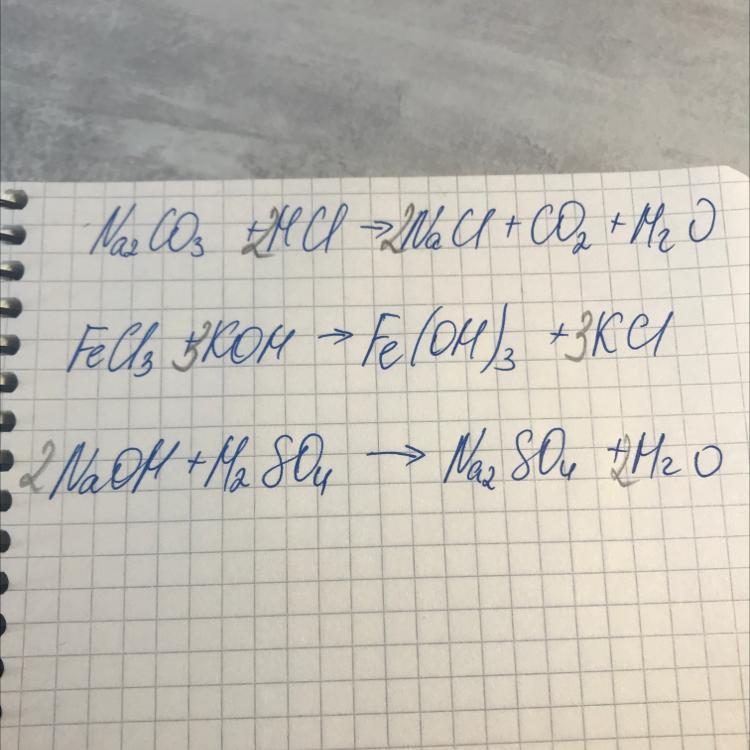 Na₂CO₃ + 2HCl → 2NaCl + CO₂ + H₂O
FeCl₃ + 3KOH → Fe(OH)₃ + 3KCl
2NaOH + H₂SO₄ → Na₂SO₄ + 2H₂O